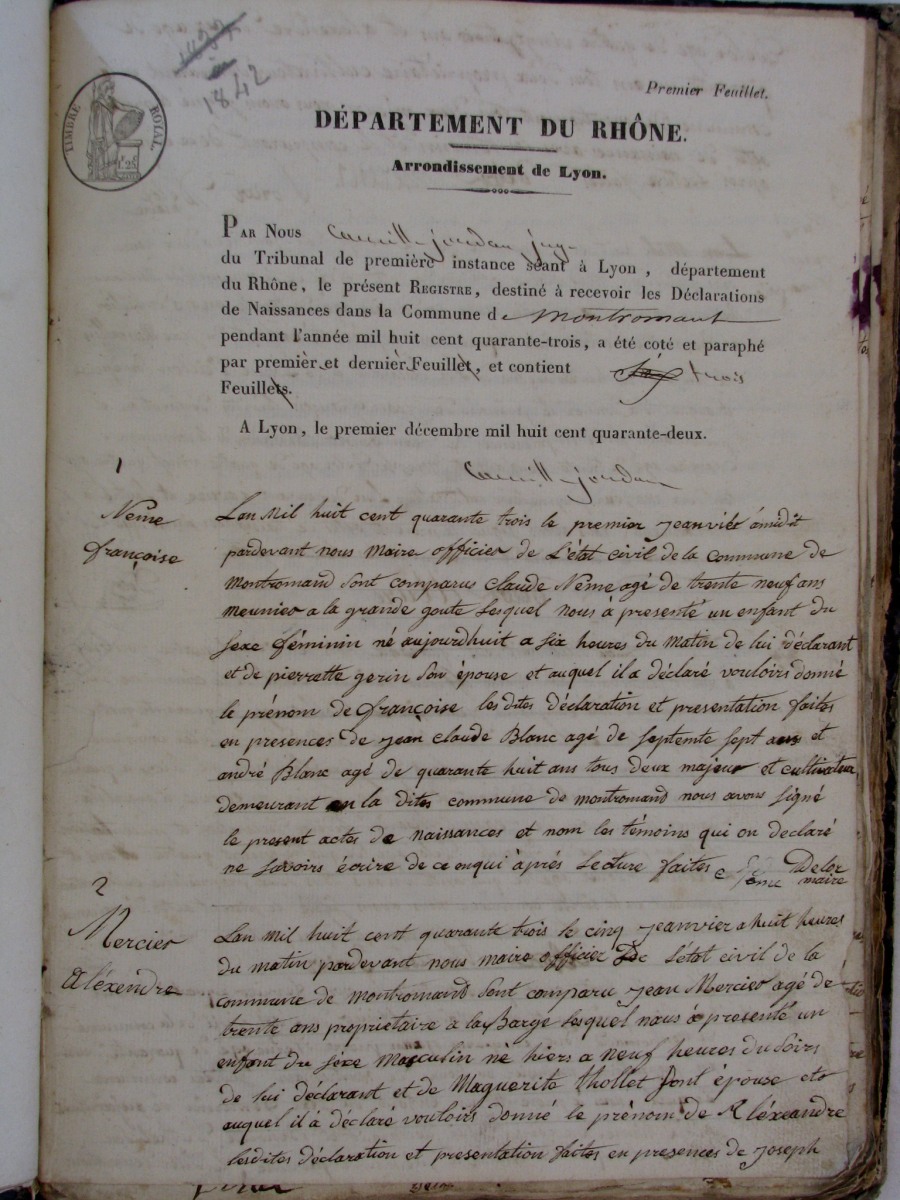 1842
Premier Feuillet.
TIMBRE ROYAL.
DÉPARTEMENT DU RHÔNE.
Arrondissement de Lyon.
PAR NOUS Camille jourdan juge
du Tribunal de première instance séant à Lyon, département
du Rhône, le présent REGISTRE, destiné à recevoir les Déclarations
de Naissances dans la Commune de Montromant
pendant l'année mil huit cent quarante-trois, a été coté et paraphé
par premier et dernier Feuillet, et contient trois
Feuillets.
A Lyon, le premier décembre mil huit cent quarante-deux.
Camille jourdan
1
Néme
françoise
Lan Mil huit cent quarante trois le premier jeanvier à midit
pardevant nous Maire officier de L'état civil de la commune de
Montromand sont comparus Claude Néme agé de trente neuf ans
meunier a la grande goute Lesquel nous à presenté un enfant du
sexe féminin né aujourdhuit a six heures du Matin de lui déclarant
et de pierrette gerin son épouse et auquel il a déclaré vouloirs donné
le prénom de françoise les dites déclaration et presentation faites
en presences de jean claude Blanc agé de septente sept ans et
andré Blanc agé de quarante huit ans tous deux majeur et cultivateur
demeurant en la dites commune de montromand nous avons signé
le present actes de naissances et nom les témoins qui on declaré
ne savoirs écrire de ce enqui après Lecture faites Delor
maire
2
Mercier
Aléxendre
Lan mil huit cent quarante trois le cinq jeanvier a huit heures
du matin pardevant nous maire officier De L'état civil de la
commune de montromand sont comparu jean Mercier agé de
trente ans propriétaire a la Barge lesquel nous à presenté un
enfant du séxe Masculin né hiers a neuf heures du soirs
de lui déclarant et de Maguerite thollet sont épouse etc
auquel il à déclaré vouloirs donné le prénom de Aléxeandre
lesdites déclaration et presentation faites en presences de joseph